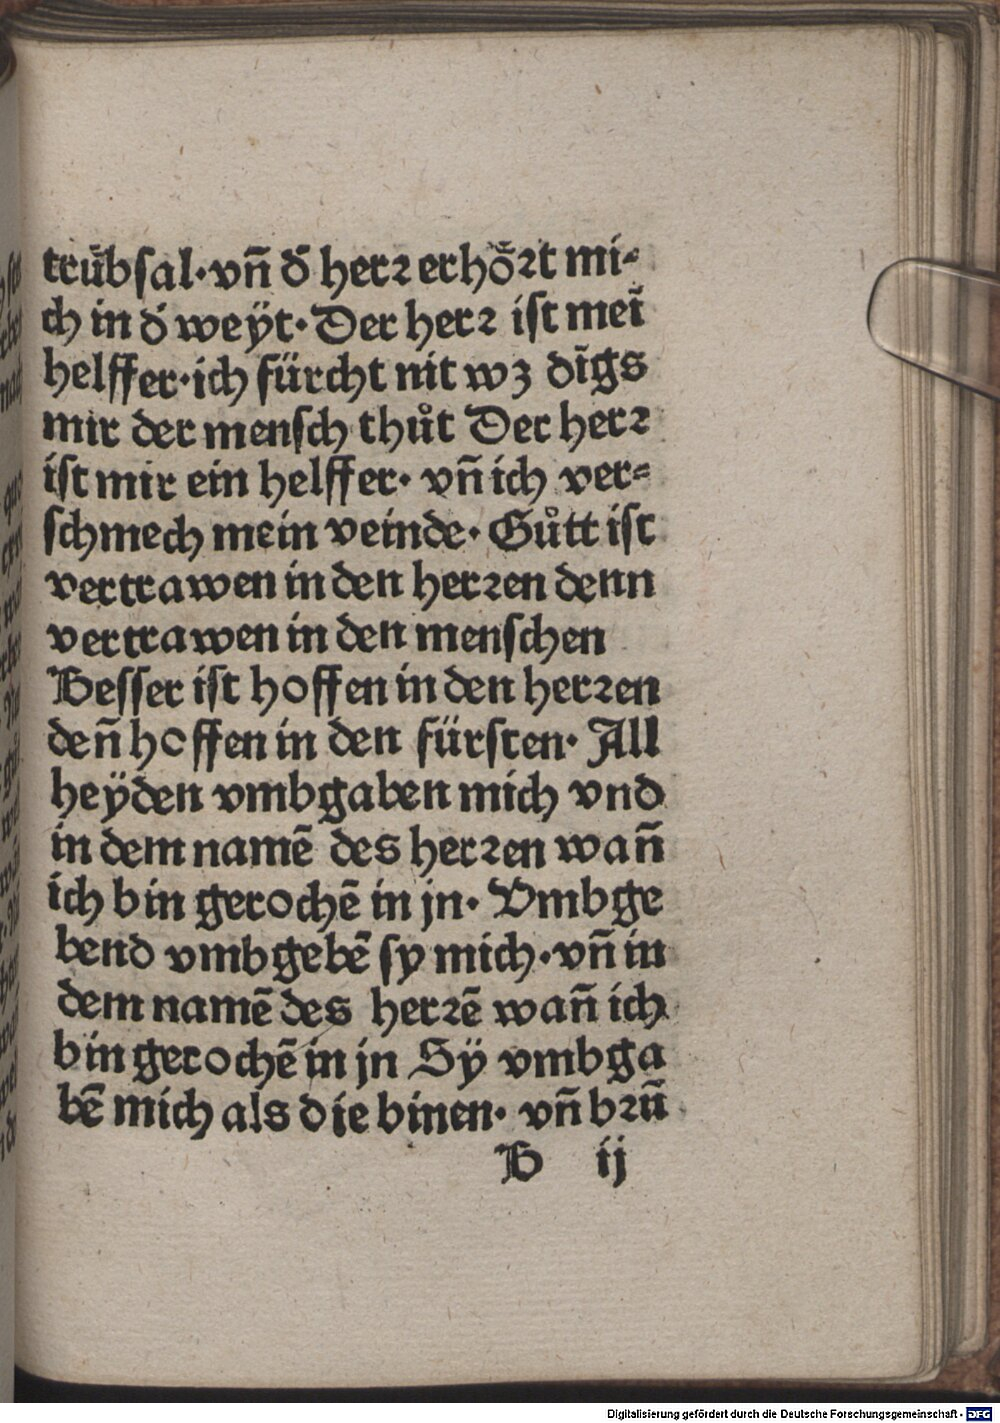 trübsal·vñ d̃ herꝛ erhöꝛt mi-
ch in d̃ weÿt·Der herꝛ ist meī
helffer·ich fürcht nit wꝫ dīgs
mir der mensch thůt Der herꝛ
ist mir ein helffer· vñ ich ver-
schmech mein veinde· Gůtt ist
vertrawen in den herꝛen denn
vertrawen in den menschen
Besser ist hoffen in den herꝛen
deñ hoffen in den fürsten· All
heÿden vmbgaben mich vnd
in dem namē des herꝛen wañ
ich bin gerochē in jn· Vmbge
bend vmbgebē sy mich·vñ in
dem namē des herꝛē wañ ich
bin gerochē in jn Sÿ vmbga
bē mich als die binen· vñ bꝛū
B ij
Digitalisierung gefördert durch die Deutsche Forschungsgemeinschaft - DFG